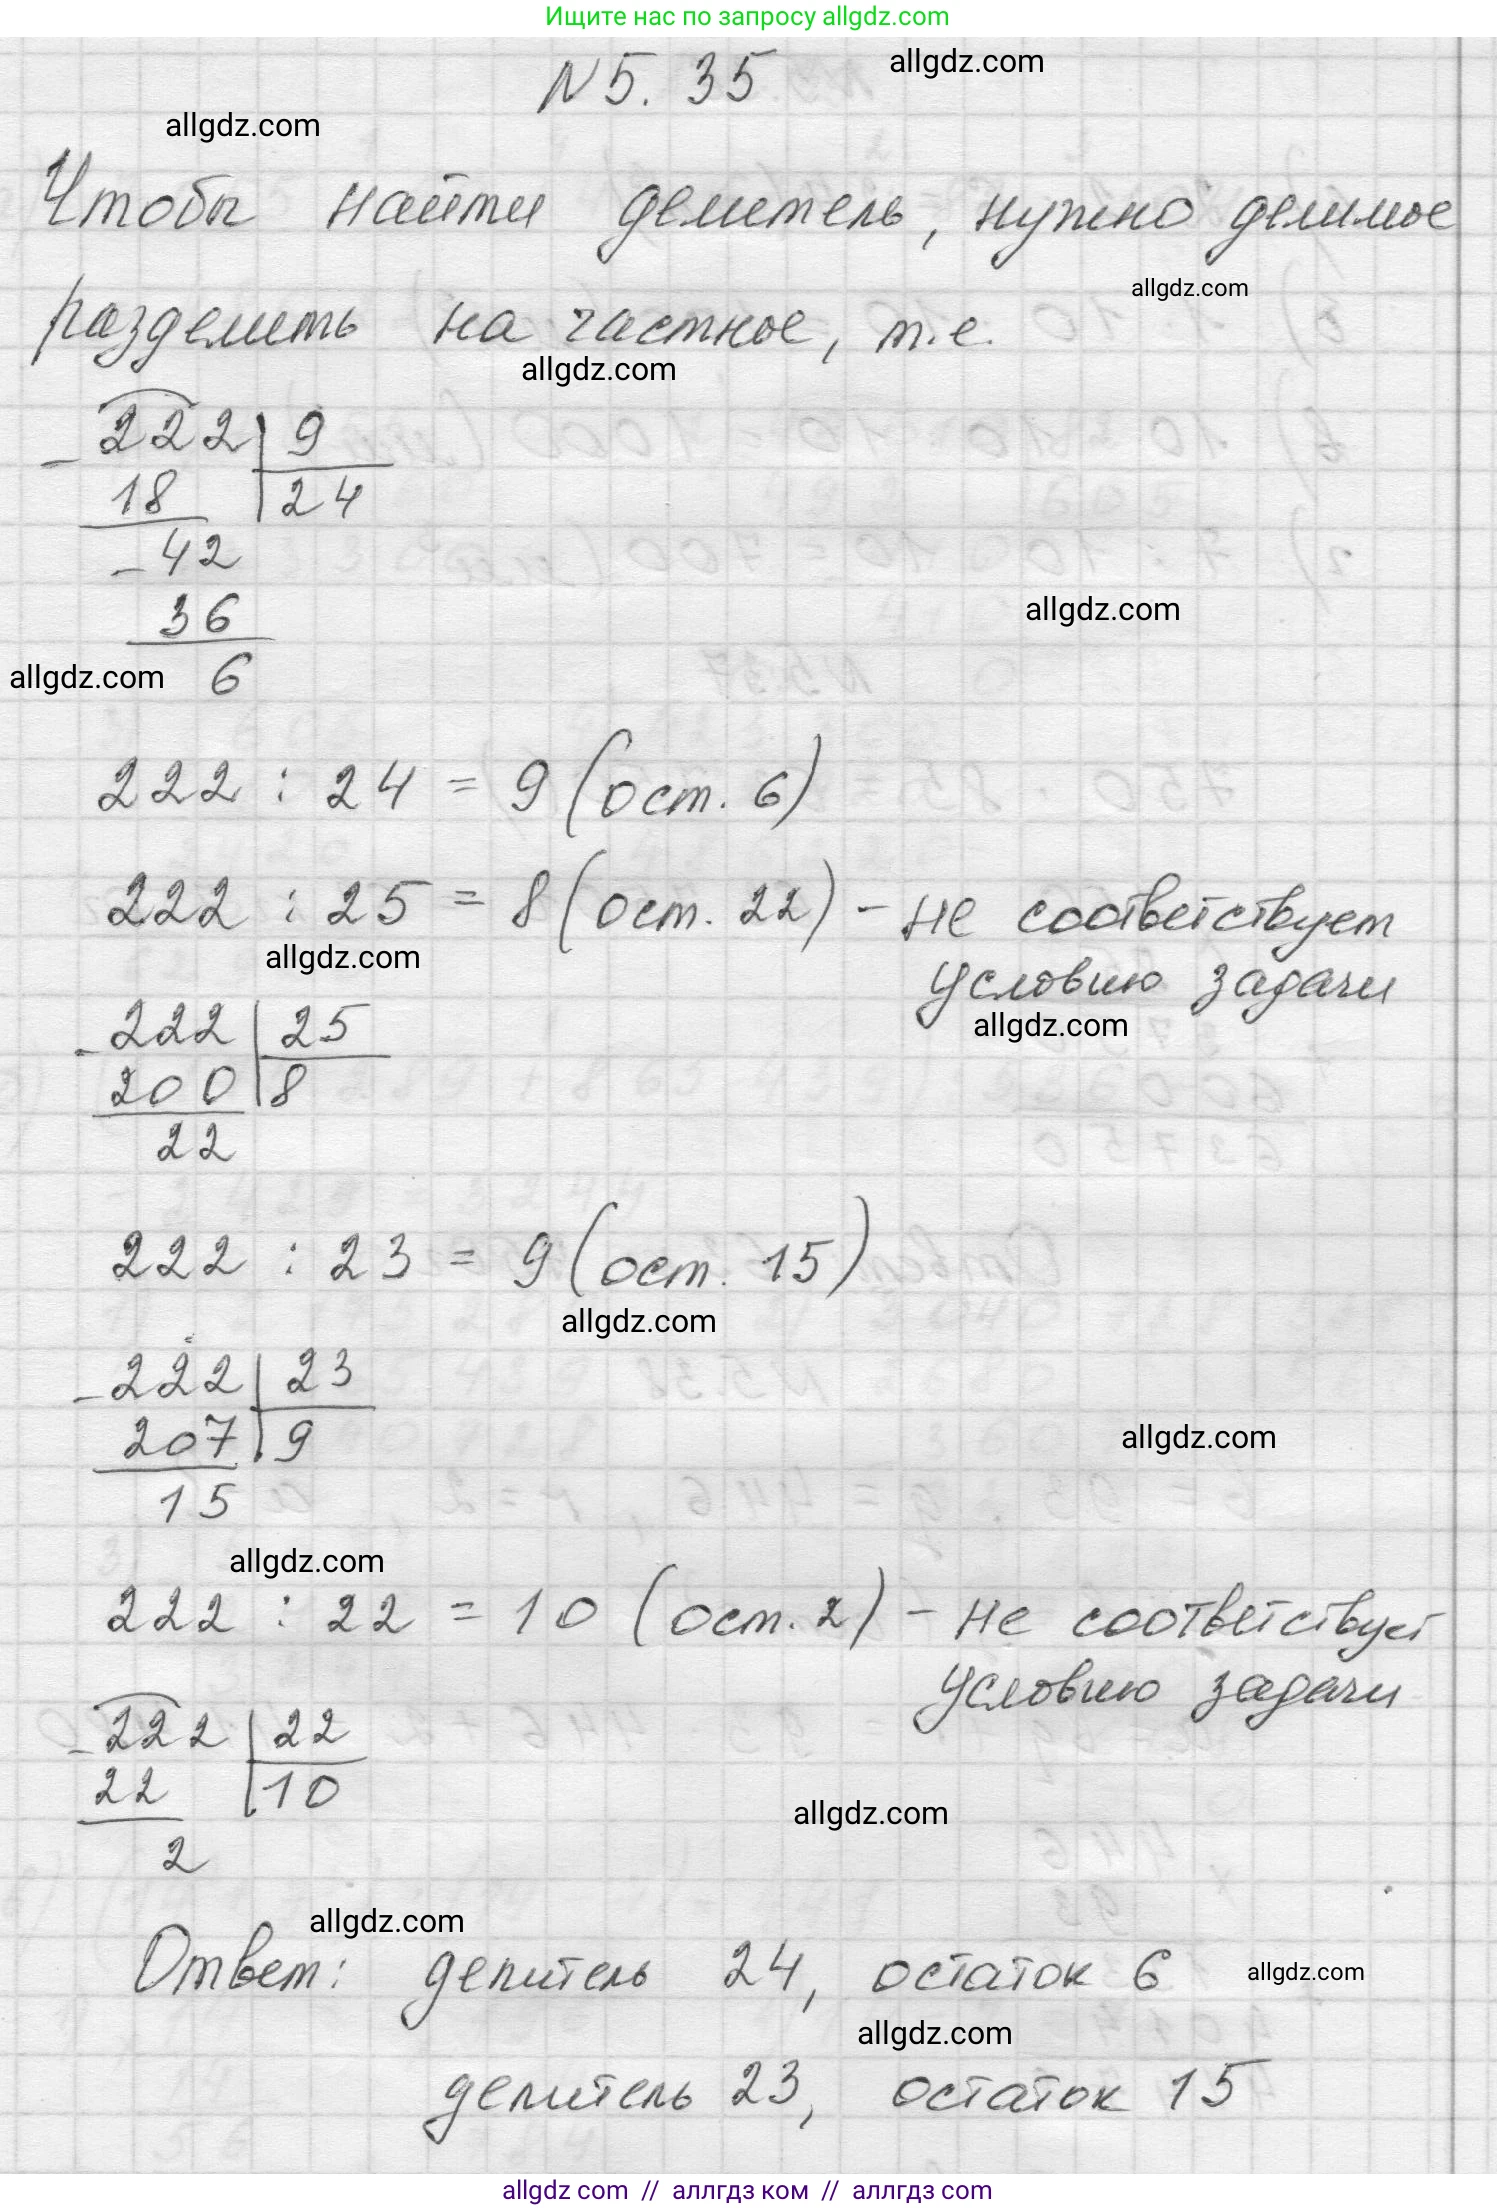 Ищите нас по запросу allgdz.com
N 5. 35
allgdz.com
allgdz.com
Чтобы найти делитель, нужно делимое
allgdz.com
разделить на частное, т.е.
allgdz.com
- 222 | 9
18 | 24
- 42
36
allgdz.com
allgdz.com
6
222 : 24 = 9 (ост. 6)
222 : 25 = 8 (ост. 22) - не соответствует
allgdz.com
условию задачи
allgdz.com
- 222 | 25
200 | 8
22
222 : 23 = 9 (ост. 15)
allgdz.com
- 222 | 23
207 | 9
allgdz.com
15
allgdz.com
222 : 22 = 10 (ост. 2) - не соответствует
условию задачи
- 222 | 22
22 | 10
allgdz.com
2
allgdz.com
Ответ: делитель 24, остаток 6
allgdz.com
allgdz.com
делитель 23, остаток 15
allgdz com // аллгдз ком // аллгдз com